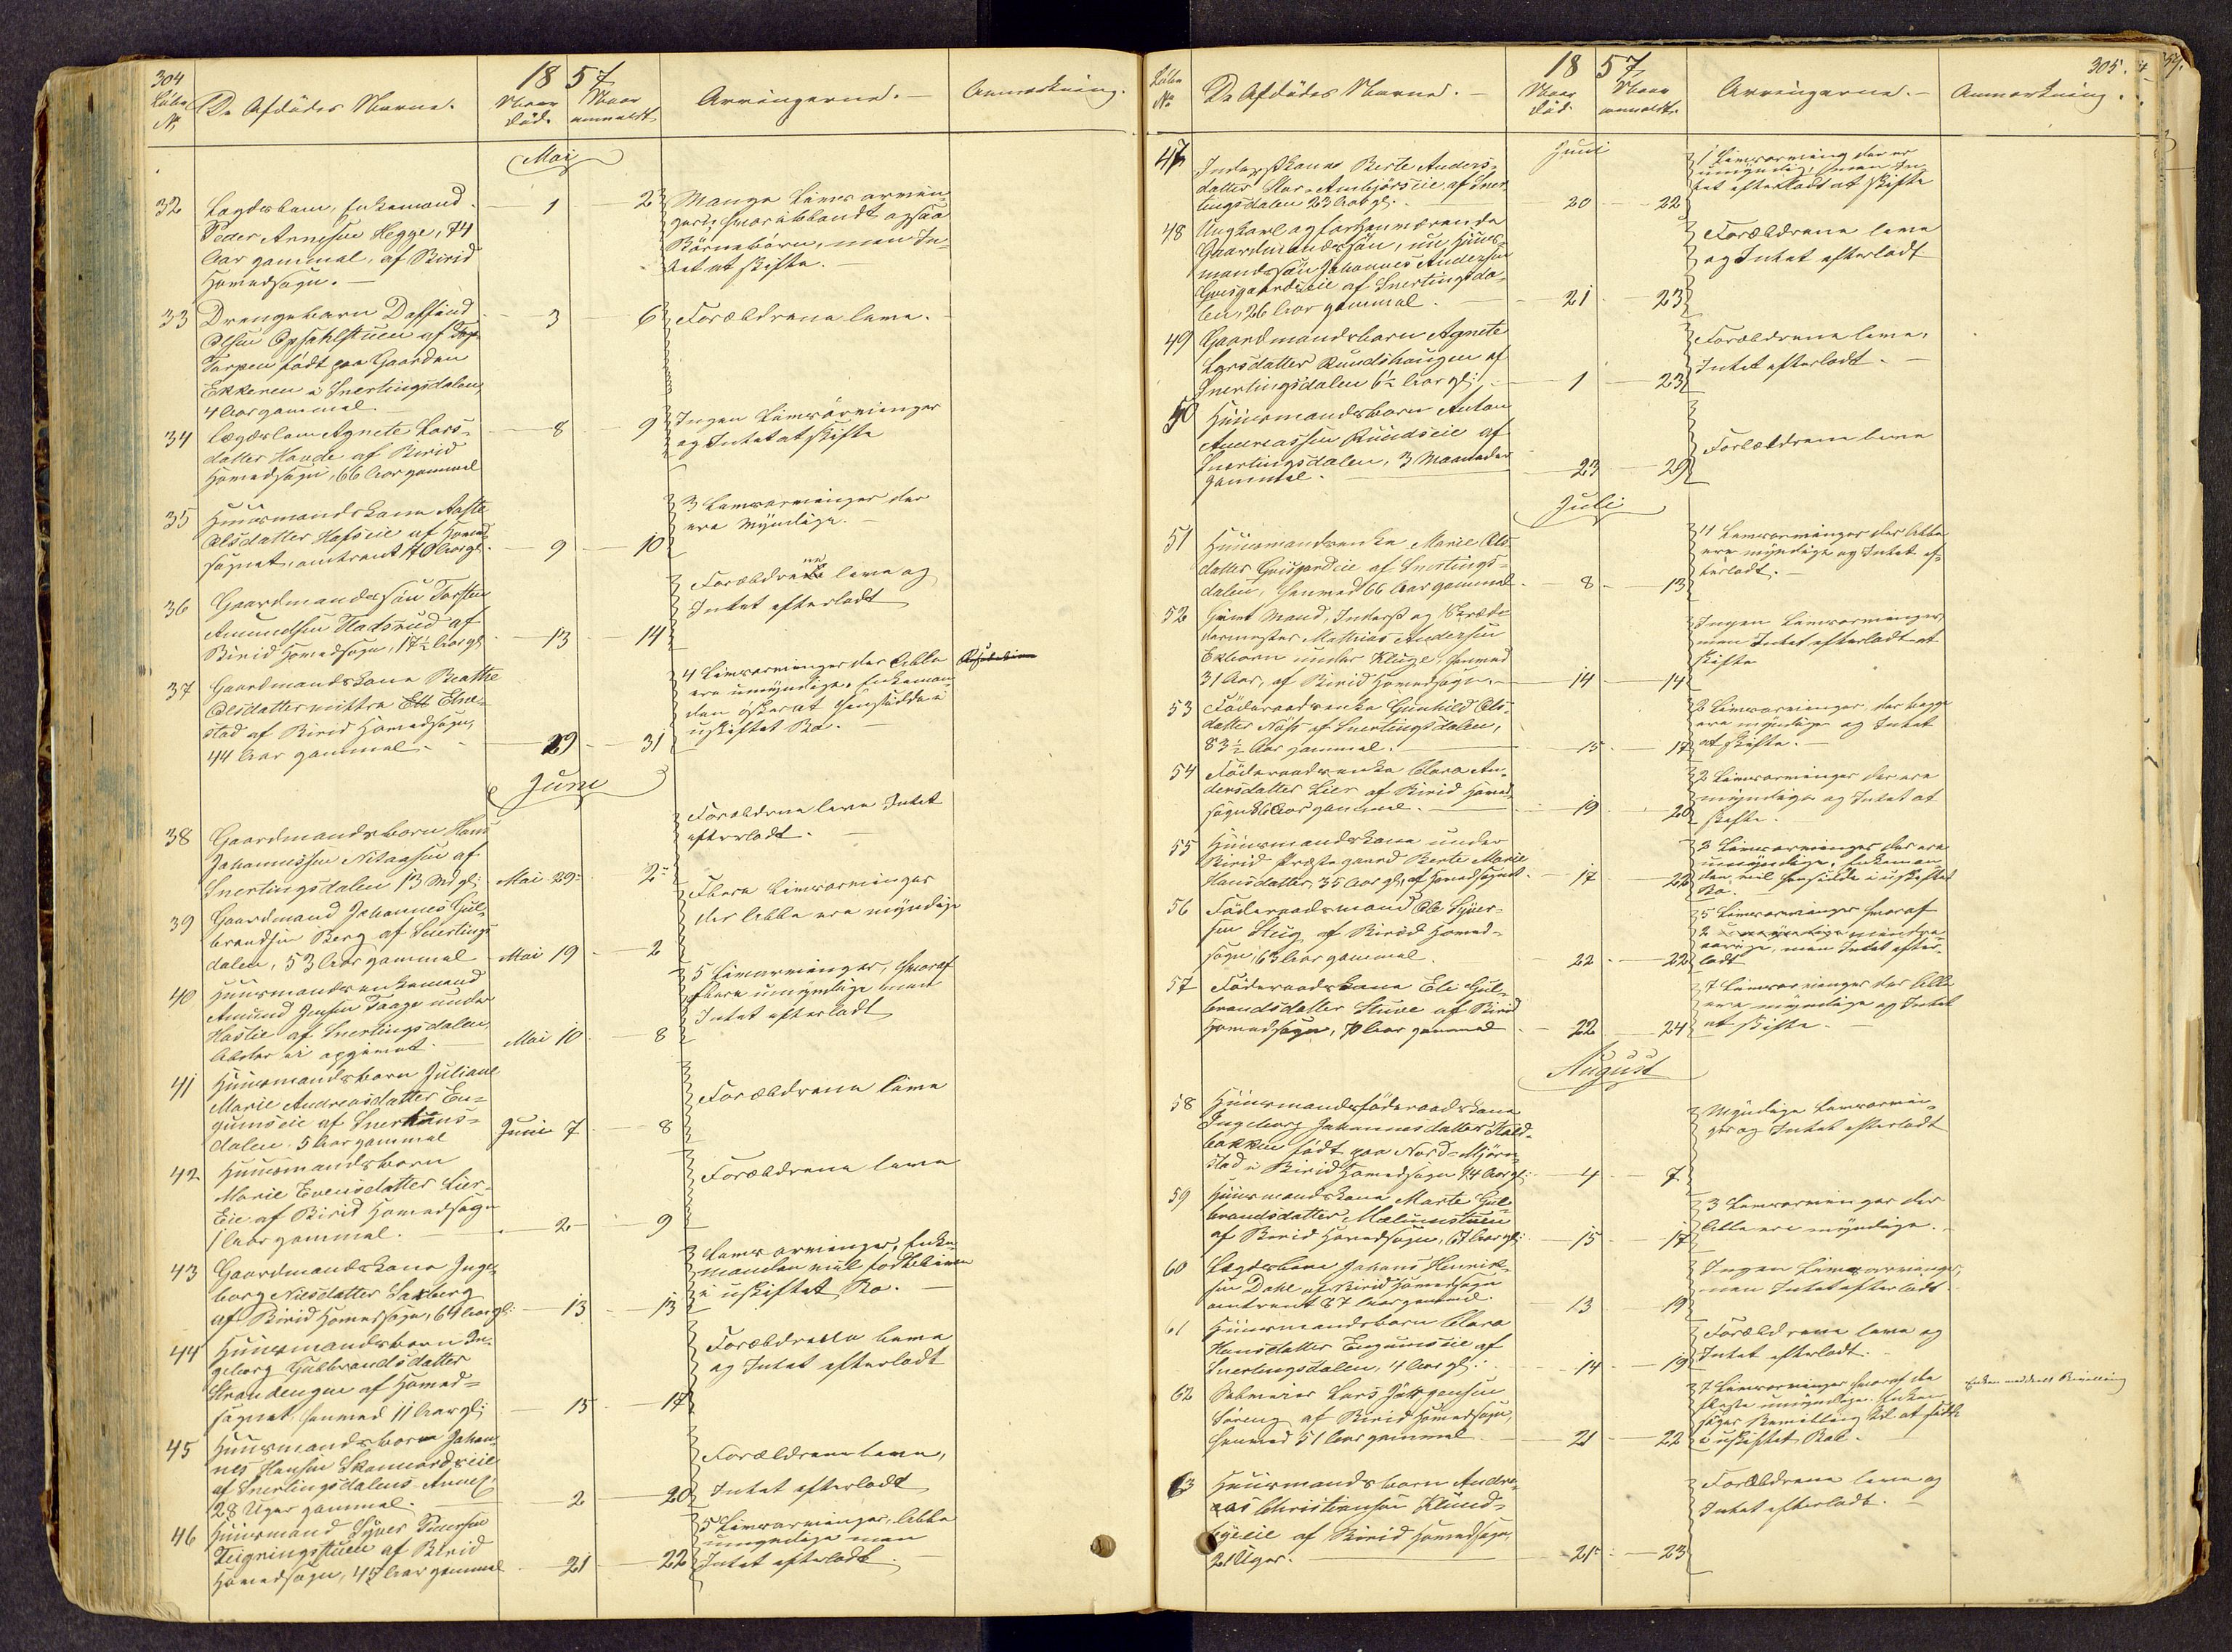 304
1857
Løbe
No
De Afdødes Navne.
Naar
død.
Naar
anmeldt
Arvingerne. —
Anmærkning.
Mai
32
Lægdslem, Enkemand
Peder Arnesen Hegge, 74
Aar gammel, af Birid
Hovedsogn. —
1
23
Mange Livsarvin-
ger, hvoriblandt ogsaa
Børnebørn, men In-
tet at skifte. —
33
Drengebarn Dafsind
Olsen Opsahlstuen af
Torpen født paa Gaarden
Ekkeren i Snertingsdalen,
4 Aar gammel
3
6
Forældrene leve. —
34
Lægdslem Agnete Lars-
datter Haude af Birid
Hovedsogn, 66 Aar gammel
8
9
Ingen Livsarvinger
og Intet at skifte
35
Huusmandskone Aaste
Olsdatter Hofseie af Hoved-
sognet, omtrent 70 Aar gl.
9
10
3 Livsarvinger der
ere Myndige. —
36
Gaardmandssøn Torsten
Amundsen Hadsrud af
Birid Hovedsogn, 17½ Aar gl.
13
14
Forældrene leve og
Intet efterladt
37
Gaardmandskone Beathe
Olsdatter Elve-
stad af Birid Hovedsogn,
44 Aar gammel. -
29
31
4 Livsarvinger der Alle
ere umyndige. Enkeman-
den ønsker at hensidde i
uskiftet Bo. —
Juni
38
Gaardmandsbarn Hans
Johannessen Nilaasen af
Snertingsdalen 13 Md gl.
Mai 29
2
Forældrene leve Intet
efterladt. —
39
Gaardmand Johannes Gul-
brandsen Berg af Snertings-
dalen, 53 Aar gammel
Mai 19
2
Flere Livsarvinger
der Alle ere myndige
40
Huusmandsenkemand
Amund Jensen Taage under
Hastie af Snertingsdalen,
Alder ei opgivet.
Mai 10
8
5 Livsarvinger, hvoraf
flere umyndige men
Intet efterladt
41
Huusmandsbarn Juliane
Marie Andreasdatter En-
gumseie af Snertings-
dalen. 5 Aar gammel
Juni 7
8
Forældrene leve
42
Huusmandsbarn
Marie Evensdatter Lier-
Eie af Birid Hovedsogn
1 Aar gammel.
2
9
Forældrene leve
43
Gaardmandskone Inge-
borg Nilsdatter Saxberg
af Birid Hovedsogn, 64 Aar gl.
13
13
Livsarvinger, Enke-
manden vil
i uskiftet Bo. —
44
Huusmandsbarn In-
geborg Gulbrandsdatter
Strandengen af Hoved-
sognet, henved 11 Aar gl.
15
17
Forældrene leve
og Intet efterladt
45
Huusmandsbarn Johan-
nes Hansen Skonnordseie
af Snertingsdalens Annex,
28 Uger gammel.
2
20
Forældrene leve,
Intet efterladt
46
Huusmand Syver Pedersen
Teigningstuen af Birid
Hovedsogn, 45 Aar gammel
21
22
5 Livsarvinger, Alle
umyndige men
Intet efterladt.
305.
1857
Løbe
No
De Afdødes Navne. —
Naar
død.
Naar
anmeldt.
Arvingerne. —
Anmærkning.
Juni
47
Inderstkone Berte Anders-
datter af Sner-
tingsdalen 23 Aar gl.
20
22
1 Livsarving der er
umyndig, men In-
tet efterladt at skifte
48
Ungkarl og forhenværende
Gaardmandssøn, nu Huus-
mandssøn Johannes Andersen
Grisgaardseie af Snertingsda-
len, 26 Aar gammel.
21
23
Forældrene leve
og Intet efterladt
49
Gaardmandsbarn Agnete
Larsdatter Rundshaugen af
Snertingsdalen 6½ Aar gl.
1
23
Forældrene leve,
Intet efterladt. —
50
Huusmandsbarn Anton
Andreassen Rundseie af
Snertingsdalen, 3 Maaneder
gammel.
23
29
Forældrene leve
Juli
51
Huusmandsenke Marie Ols-
datter Grisgardeie af Snertings-
dalen, henved 66 Aar gammel
8
13
4 Livsarvinger der Alle
ere myndige og Intet ef-
terladt. —
52
Givt Mand, Inderst og Skræd-
dermester Mathias Andersen
Ekbarn under Kluge, henved
31 Aar, af Birid Hovedsogn. —
14
14
Ingen Livsarvinger,
men Intet efterladt at
skifte
53
Føderaadsenke Gunhild Ols-
datter Næss af Snertingsdalen,
83½ Aar gammel.
15
17
2 Livsarvinger, der begge
ere myndige og Intet
at skifte. —
54
Føderaadsenke Clara An-
dersdatter Lier af Birid Hoved-
sogn 86 Aar gammel.
19
20
2 Livsarvinger der ere
myndige og Intet at
skifte.
55
Huusmandskone under
Birid Præstegaard Berte Marie
Hansdatter, 35 Aar gl. af Hovedsognet.
17
22
3 Livsarvinger der ere
umyndige. Enkeman-
den vil hensidde i uskiftet
Bo.
56
Føderaadsmand Ole Syver-
sen Stug af Birid Hoved-
sogn, 63 Aar gammel.
22
22
5 Livsarvinger hvoraf
2 mindre-
aarige, men Intet efter-
ladt
57
Føderaadskone Eli Gul-
brandsdatter Stuve af Birid
Hovedsogn, 70 Aar gammel
22
24
7 Livsarvinger der Alle
ere myndige og Intet
at skifte. —
August
58
Huusmandsføderaadskone
Ingeborg Johannesdatter
bakken født paa Nord-Mjørn-
stad i Birid Hovedsogn 74 Aar gl.
4
7
Myndige Livsarvin-
ger og Intet efterladt
59
Huusmandskone Marte Gul-
brandsdatter Mælumstuen
af Birid Hovedsogn, 67 Aar gl.
15
17
3 Livsarvinger der
Alle ere myndige. —
60
Lægdslem Johans Henrik-
sen Dahl af Birid Hovedsogn
omtrent 87 Aar gammel.
13
19
Ingen Livsarvinger,
men Intet efterladt.
61
Huusmandsbarn Clara
Hansdatter Engumseie af
Snertingsdalen, 4 Aar gl.
14
19
Forældrene leve og
Intet efterladt.
62
Lars Jørgensen
Søreng af Birid Hovedsogn,
henved 51 Aar gammel
21
22
7 Livsarvinger hvoraf de
fleste umyndige. Enken
søger Bevilling til at sidde
i uskiftet Boe.
Enken meddeelt Bevilling
63
Huusmandsbarn Andre-
as Christiansen Klund-
byeeie af Birid Hovedsogn,
21 Uger.
21
23
Forældrene leve og
Intet efterladt. —